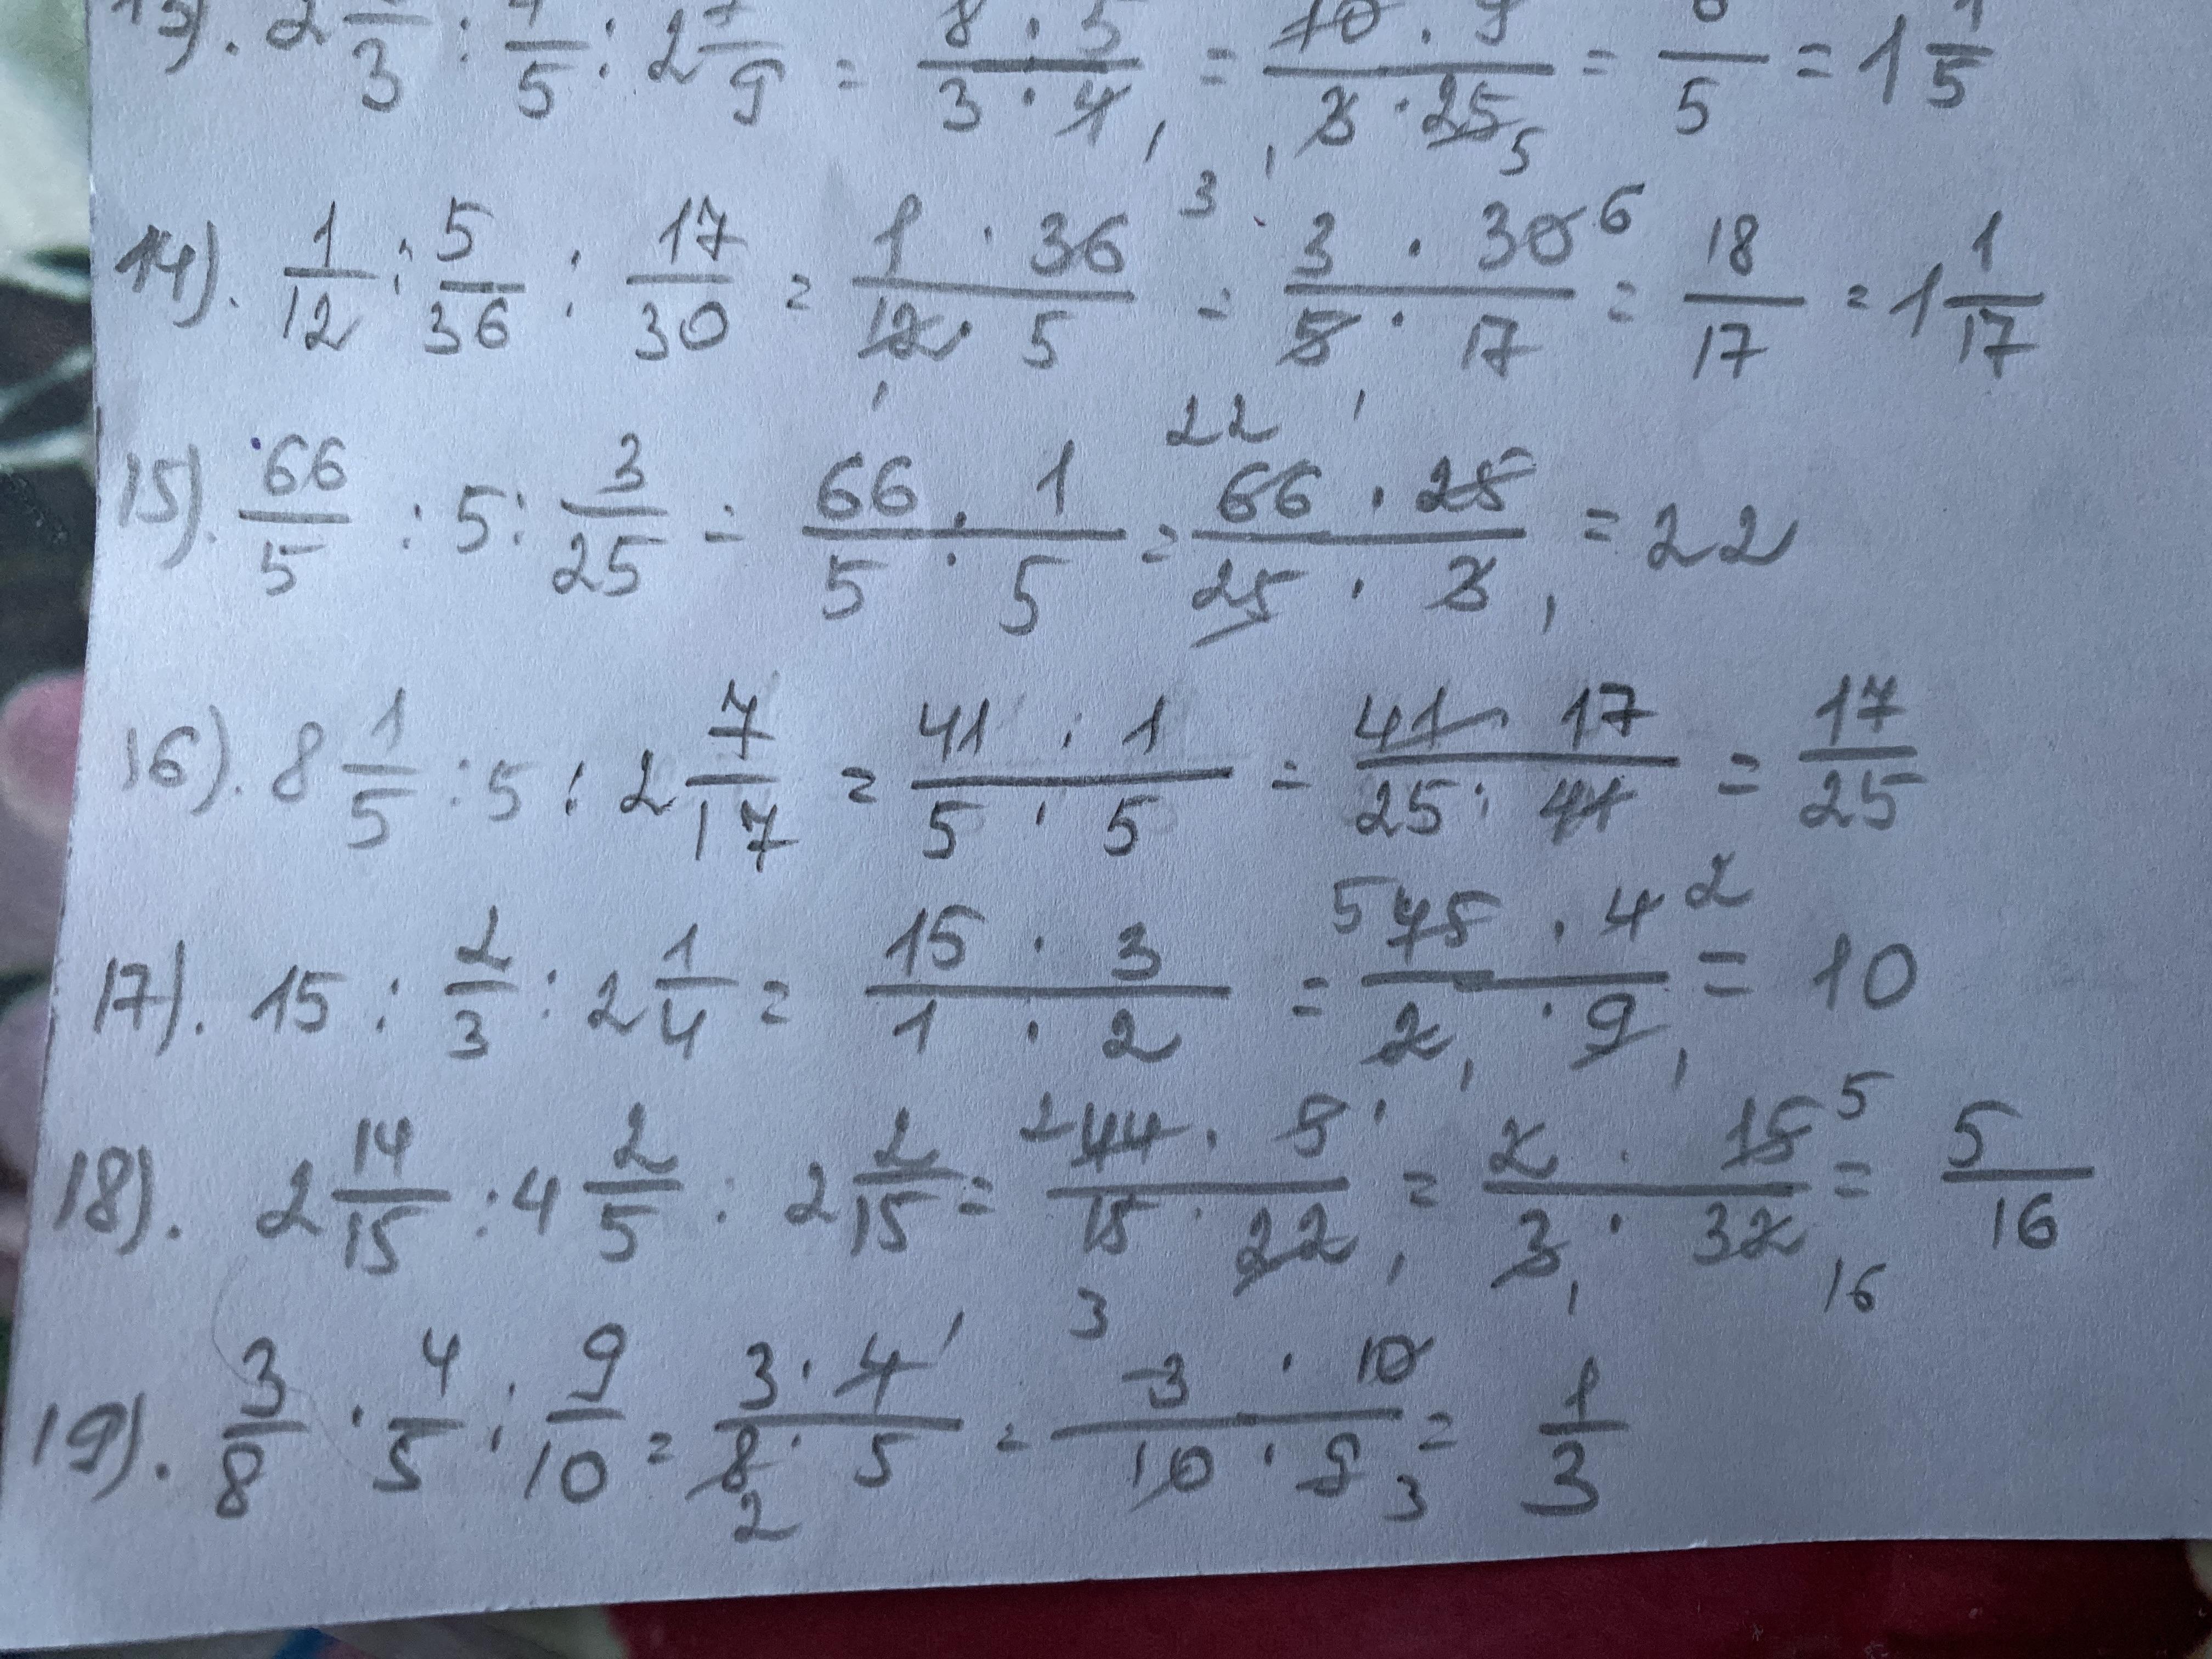 13). 2 2/3 : 4/5 : 2 7/9 = (8 · 5)/(3 · 4) 1 = (10 · 9)/(3 · 25) 1 5 = 6/5 = 1 1/5
14). 1/12 : 5/36 : 17/30 = (1 · 36 3)/(12 · 5) 1 = (3 · 30 6)/(5 · 17) 1 = 18/17 = 1 1/17
15). 66/5 : 5 : 3/25 = (66 · 1)/(5 · 5) = (22 66 · 25)/(25 · 3 1) = 22
16). 8 1/5 : 5 : 2 7/17 = (41 · 1)/(5 · 5) = (41 · 17)/(25 · 41) = 17/25
17). 15 : 2/3 : 2 1/4 = (15 · 3)/(1 · 2) = (5 45 · 4 2)/(2 1 · 9 1) = 10
18). 2 14/15 : 4 2/5 : 2 2/15 = (2 44 · 5 1)/(15 3 · 22 1) = (2 · 15 5)/(3 1 · 32 16) = 5/16
19). 3/8 · 4/5 : 9/10 = (3 · 4 1)/(8 2 · 5) = (3 · 10)/(10 · 9 3) = 1/3